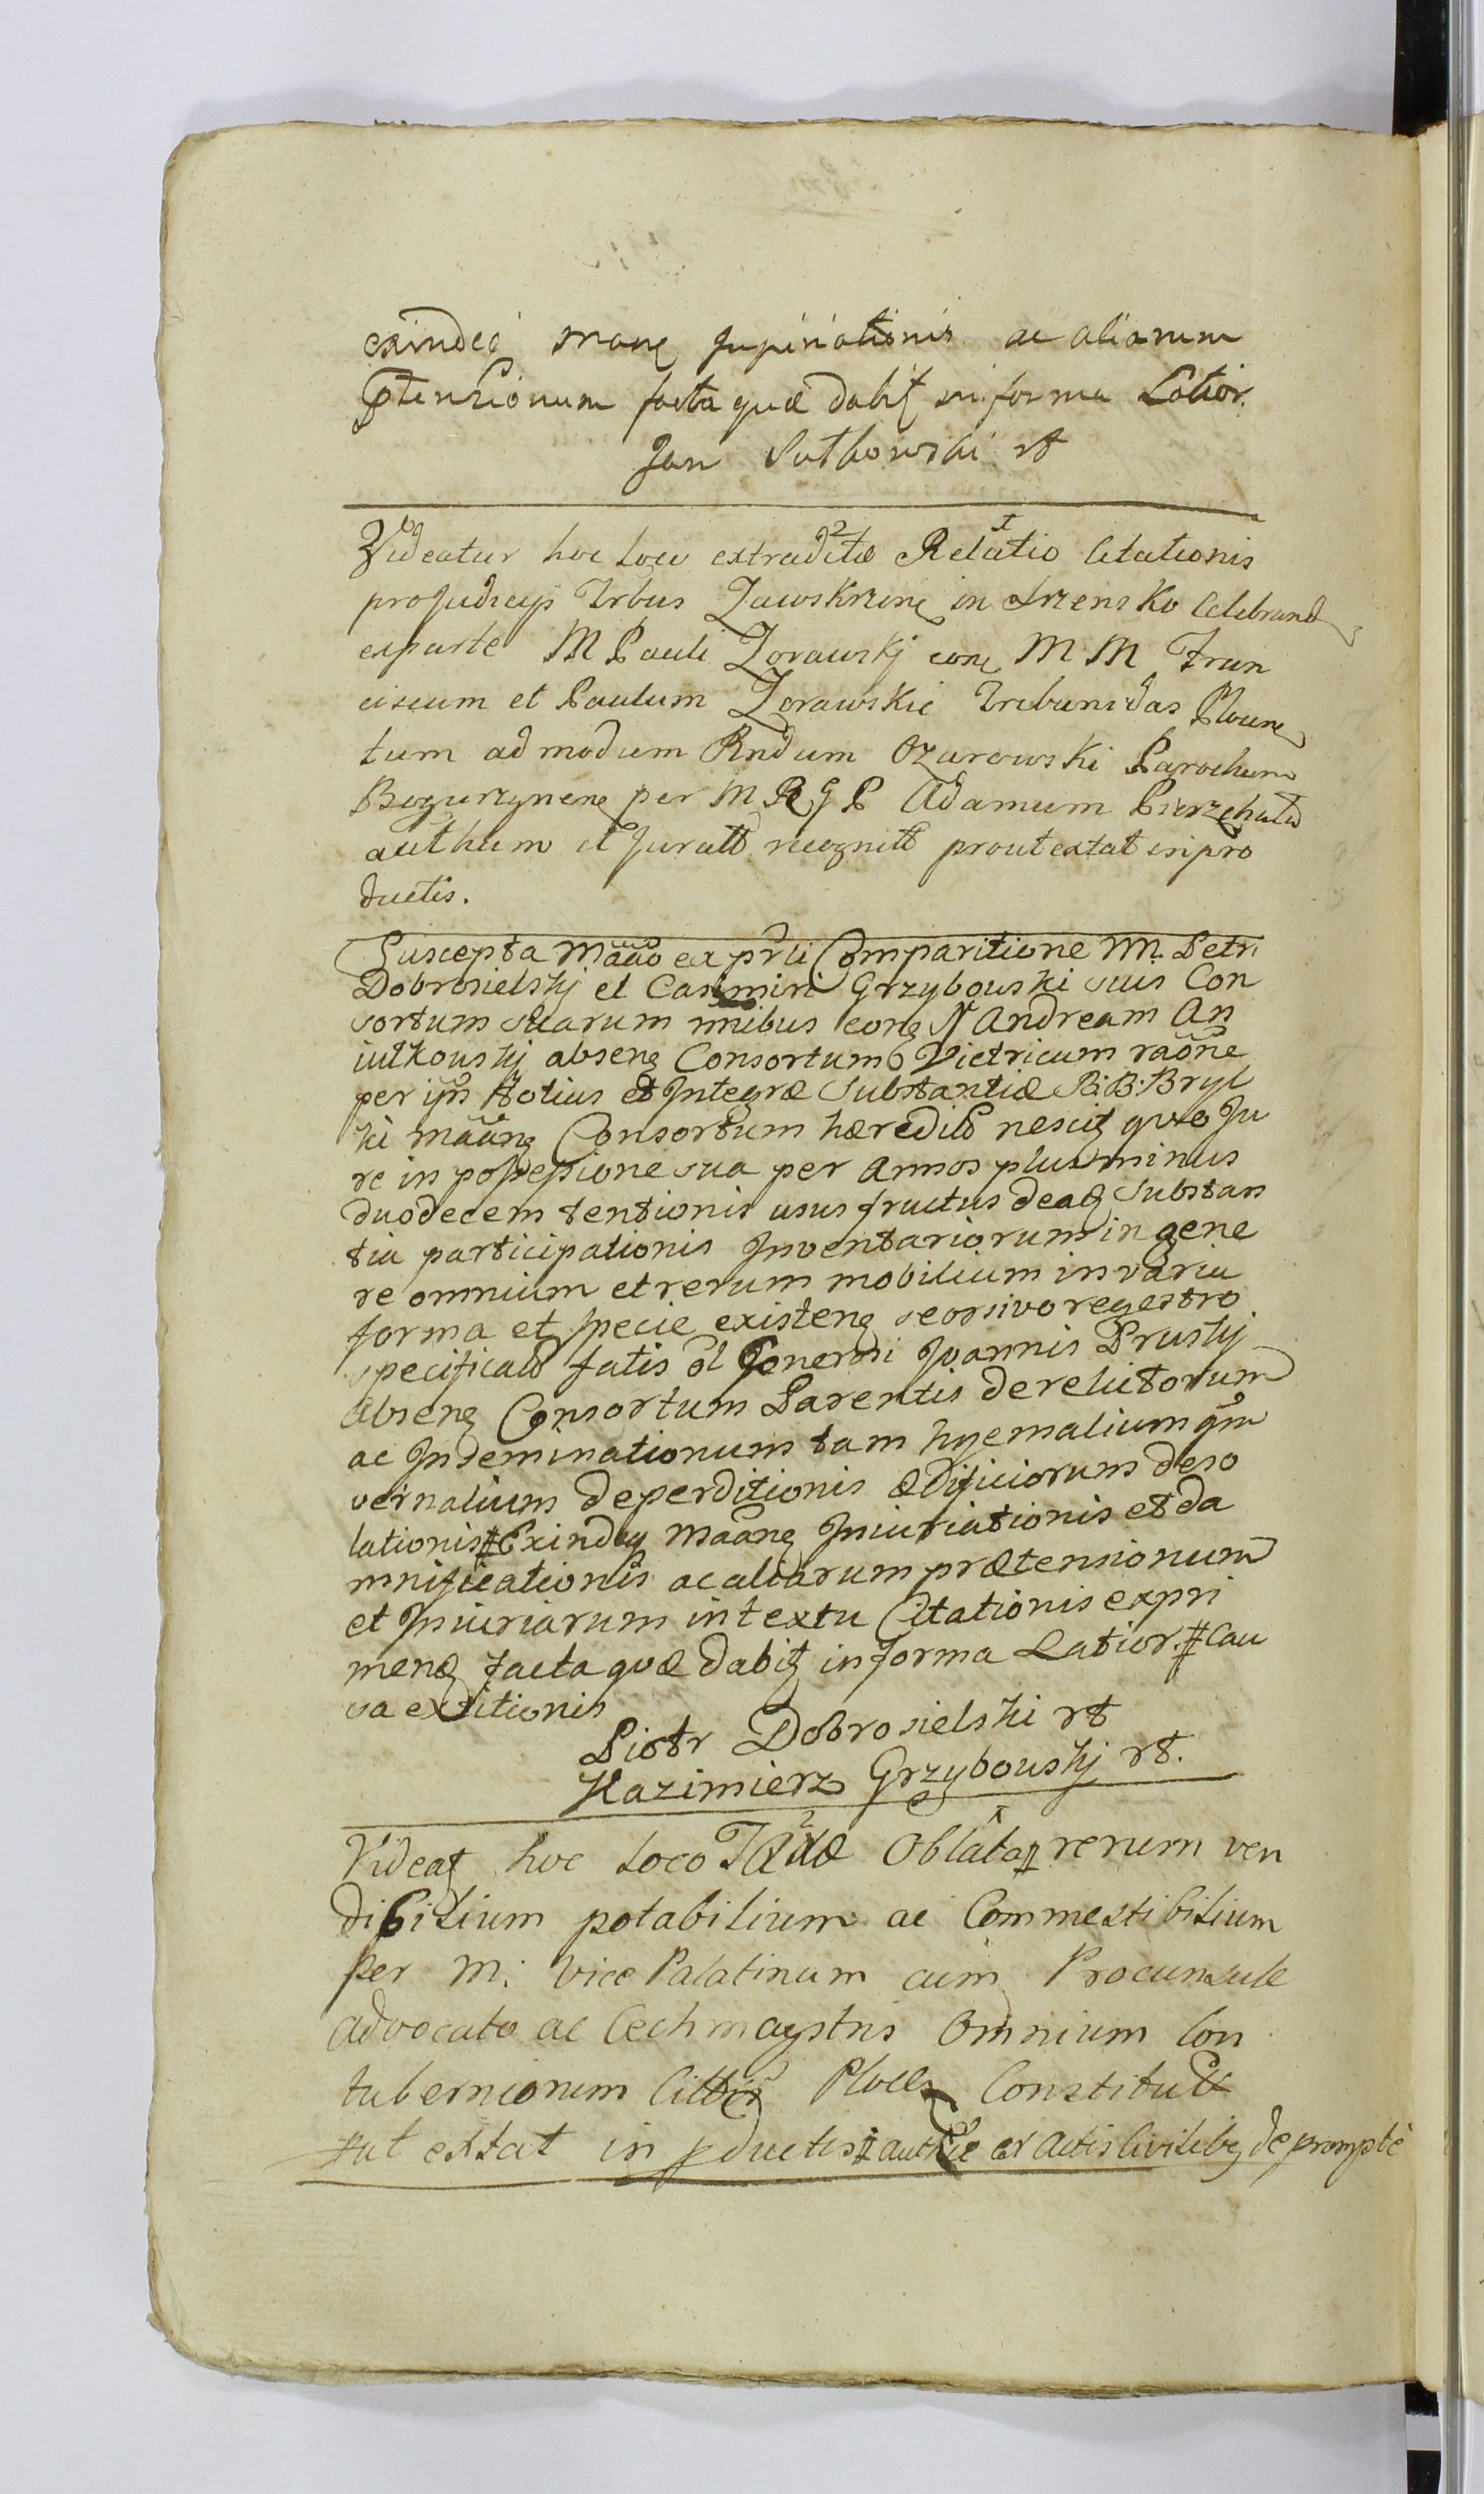 exindeq maneq Injuriationis ac aliarum
ptensionum facta quæ dabit in forma Latior.
Jan Sutkowski rt
Videatur hoc loco extraditæ Relatio Citationis
pro Judicys Trbus Zawskrzeneq in Srzensko Celebrand
ex parte M Pauli Zorawskj coneq M M Fran
ciscum et Paulum Zorawskie Tribunidas Ploceneq
tum admodum Rndum Ozarowski Parochum
Bogurzyneneq per M R G P Adamum Pierzchała
authum et Juratt recognitt prout extat in pro
ductis.
Suscepta Maâno ex pr̃li Comparitione M. Petri
Dobrosielskj et Casimiri Grzybowski suis Con
sortum suarum nnibus coneq N Andream An
iutkowskj abseneq Consortum Victricum raõne
per ipñ totius et Integræ Substantiæ B: B: Bryl
ki Maâneq Consortum hæredită nesciq quo Ju
re in possessione sua per annos plus minus
duodecem tentionis usus fructus deaq Substan
tia participationis Inventariorum in gene
re omnium et rerum mobilium in varia
forma et specie existeneq seorsivo regestro
specificatis fatis ol Generosi Joannis Pruskj
abseneq Consortum Parentis derelictorum
ac Inseminationum tam hyemalium qm
vernalium deperditionis ædificiorum deso
lationis # Exindeq Maâneq Iniuriationis et da
mnificationis ac aliarum prætensionum
et Iniuriarum in textu Citationis expri
meneq facta quæ dabiq in forma Latior. # Cau
sa exditionis
Piotr Dobrosielski rt
Kazimierz Grzybowskj rt.
Videat hoc Loco Taxæ Oblata # rerum ven
dibilium potabilium ac Commestibilium
per M: Vice Palatinum cum Proconsule
advocato ac Cechmagstris Omnium Con
tuberniorum Plocen Constitutæ
ut extat in pductis # authæ ex actis Civilibq deprompte